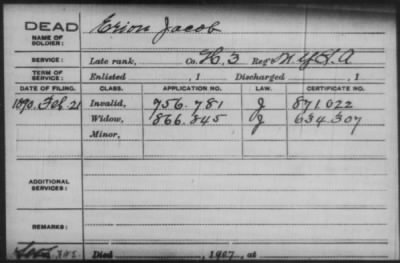 DEAD
NAME OF SOLDIER: Erion Jacob
SERVICE: Late rank, Co. H. 3 Reg't N.Y.L.A
TERM OF SERVICE: Enlisted , 1 Discharged , 1
DATE OF FILING. CLASS. APPLICATION NO. LAW. CERTIFICATE NO.
1890. Feb. 21 Invalid, 756.781 J 871022
Widow, 866.845 J 634.307
Minor,
ADDITIONAL SERVICES:
REMARKS:
Died , 1907, at